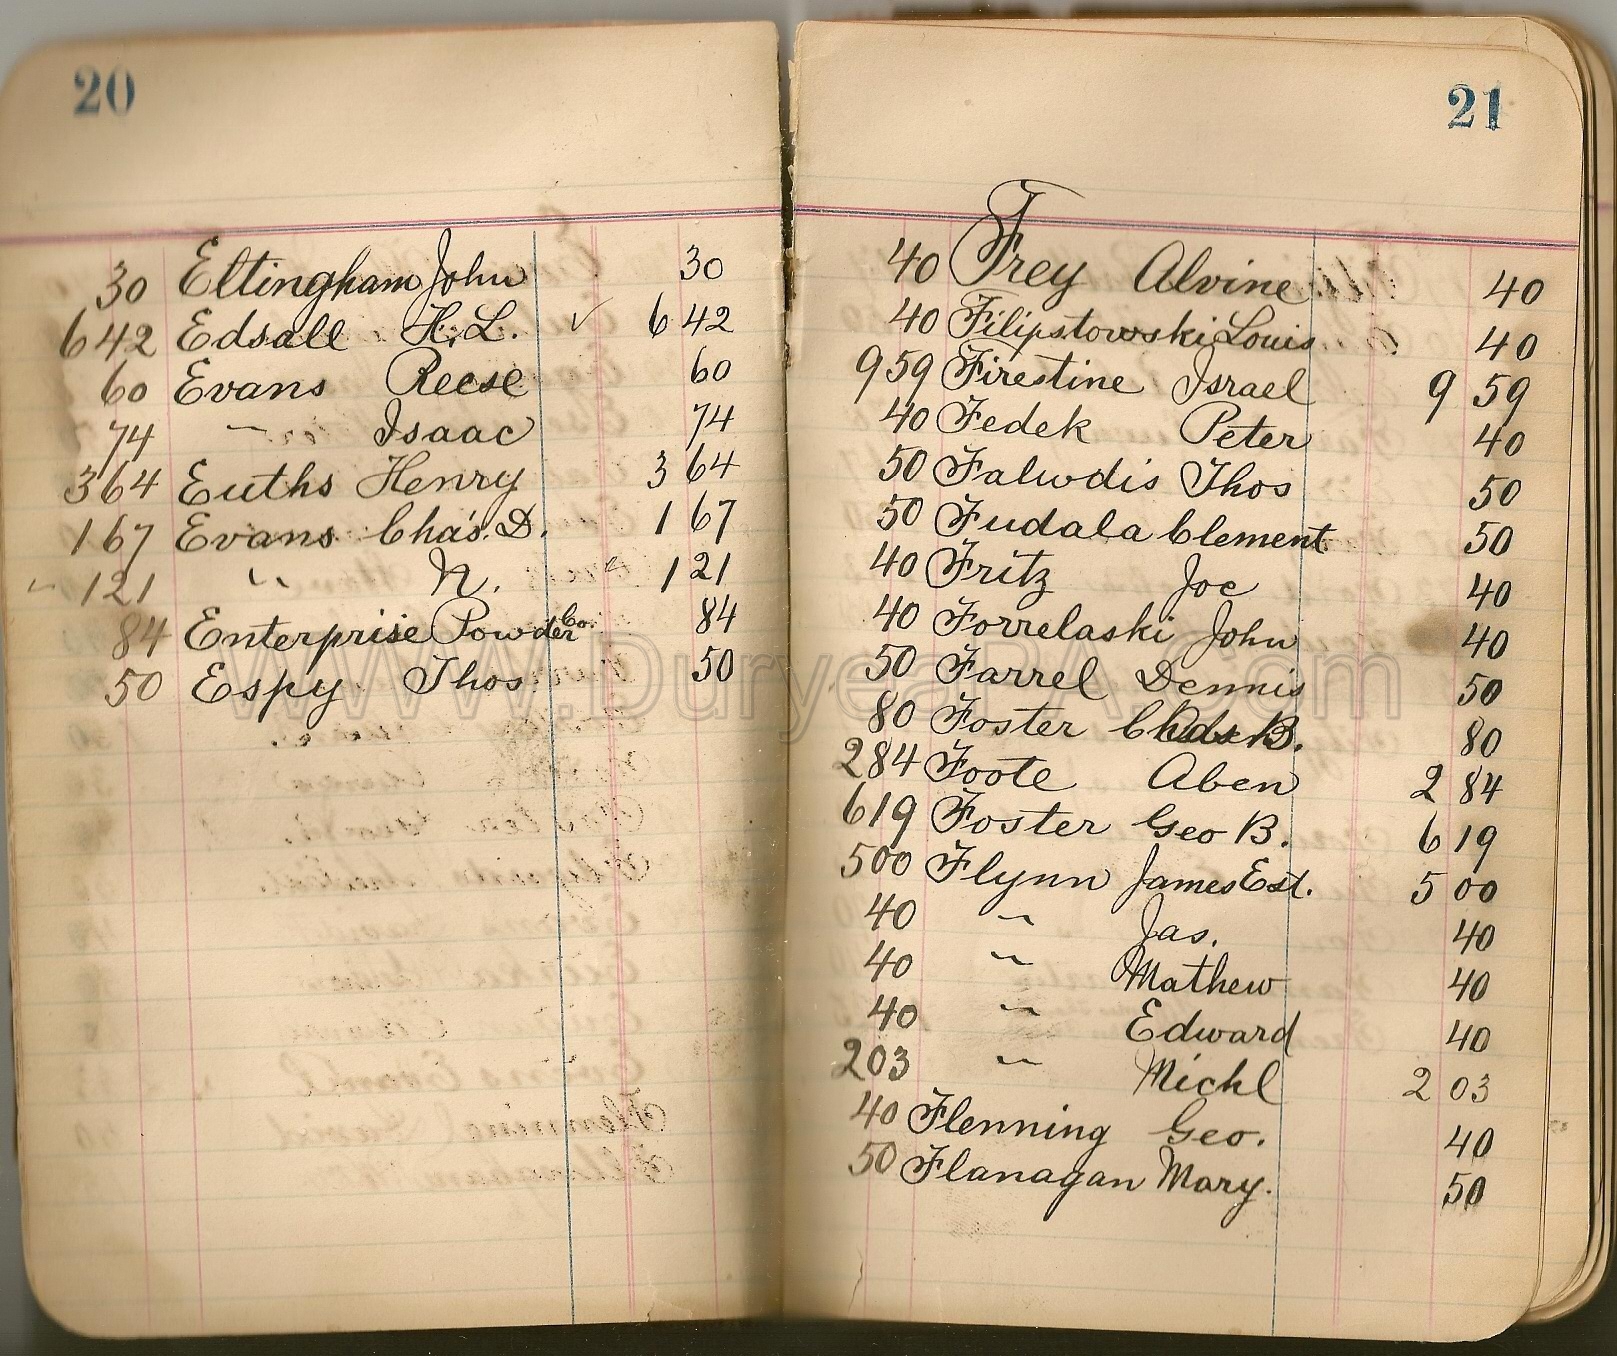 20
30 Eltingham John 30
642 Edsall H.L. ✓ 6 42
60 Evans Reese 60
74 " Isaac 74
364 Euths Henry 3 64
167 Evans Chas. D. 1 67
" 121 " N. " 1 21
84 Enterprise Powder Co. 84
50 Espy Thos 50
21
40 Frey Alvine 40
40 Filipstowski Louis 40
959 Firestine Israel 9 59
40 Fedek Peter 40
50 Falwdis Thos 50
50 Fudala Clement 50
40 Fritz Joe 40
40 Forrelaski John 40
50 Farrel Dennis 50
80 Foster B. 80
284 Foote Aben 2 84
619 Foster Geo B. 6 19
500 Flynn James Est. 5 00
40 " Jas. 40
40 " Mathew 40
40 " Edward 40
203 " Michl 2 03
40 Flenning Geo. 40
50 Flanagan Mary. 50
www.DuryeaPA.com